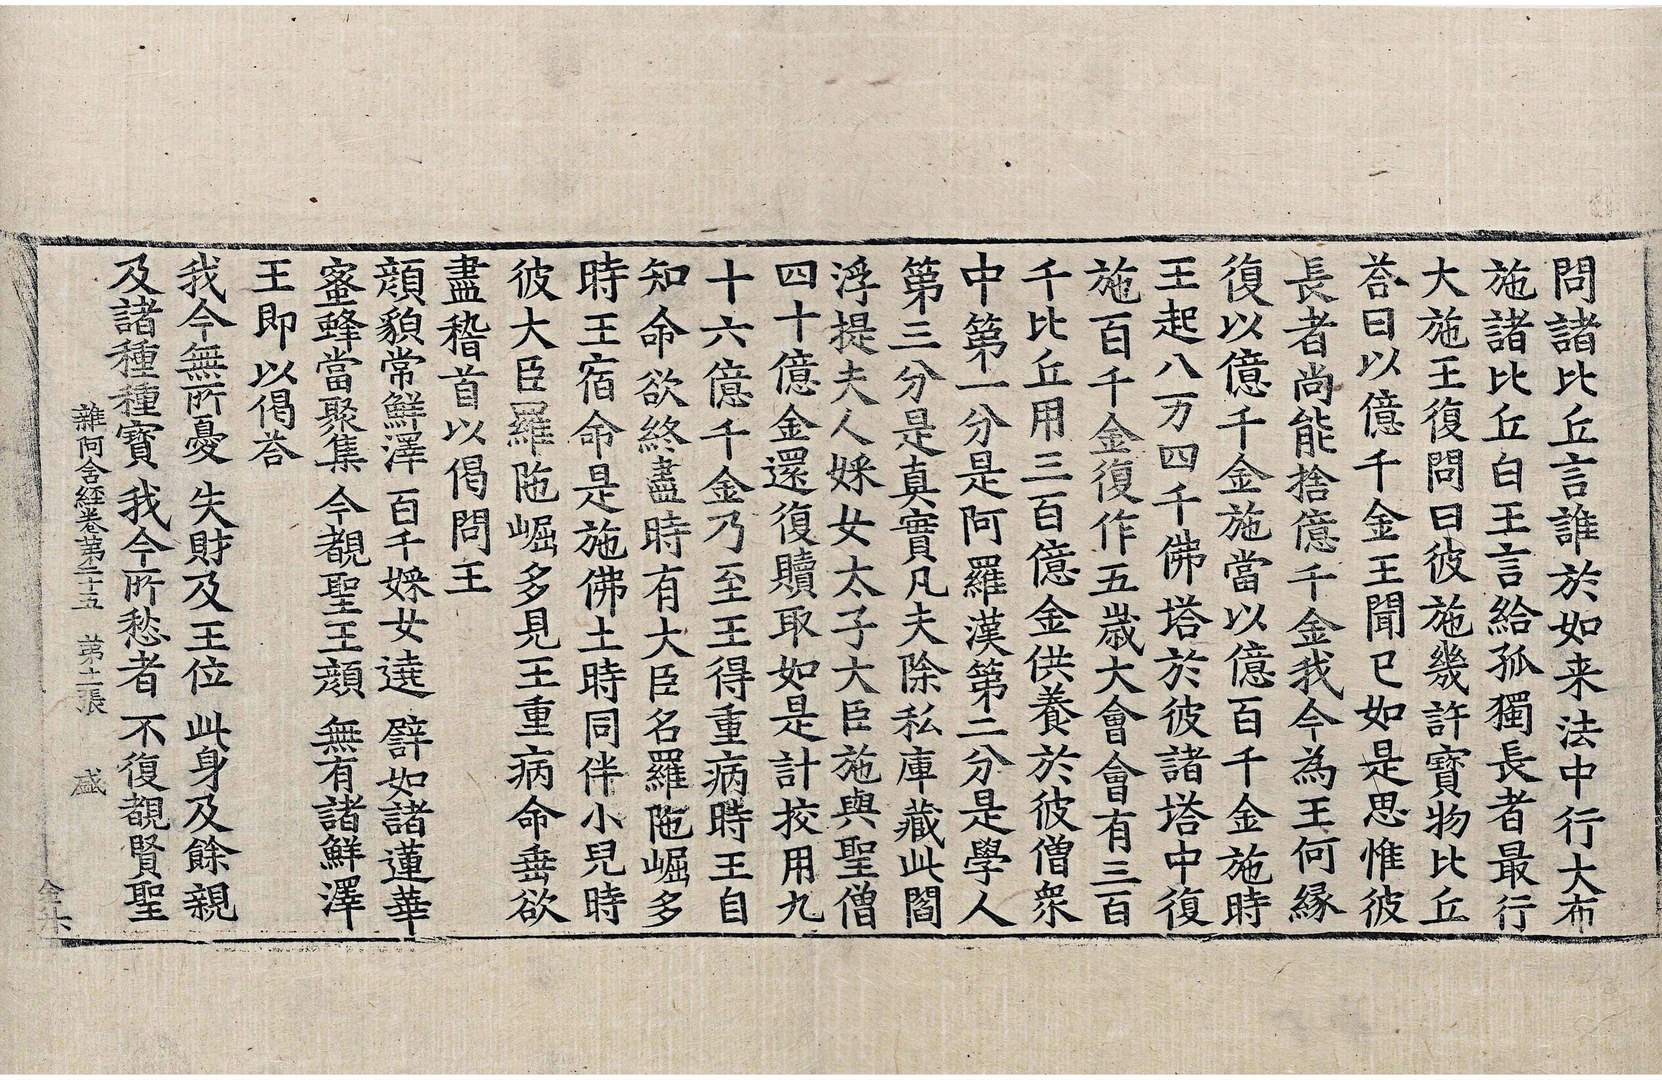 問諸比丘言誰於如来法中行大布
施諸比丘白王言給孤獨長者最行
大施王復問曰彼施幾許寶物比丘
荅曰以億千金王聞已如是思惟彼
長者尚能捨億千金我今為王何縁
復以億千金施當以億百千金施時
王起八万四千佛塔於彼諸塔中復
施百千金復作五歲大會會有三百
千比丘用三百億金供養於彼僧衆
中第一分是阿羅漢第二分是學人
第三分是真實凡夫除私庫藏此閻
浮提夫人婇女太子大臣施與聖僧
四十億金還復贖取如是計挍用九
十六億千金乃至王得重病時王自
知命欲終盡時有大臣名羅陁崛多
時王宿命是施佛土時同伴小兒時
彼大臣羅陁崛多見王重病命垂欲
盡稽首以偈問王
顔貌常鮮澤 百千婇女遶 譬如諸蓮華
蜜蜂當聚集 今覩聖王顔 無有諸鮮澤
王即以偈荅
我今無所憂 失財及王位 此身及餘親
及諸種種寶 我今所愁者 不復覩賢聖
雜阿含經卷第二十五 第十二張 盛